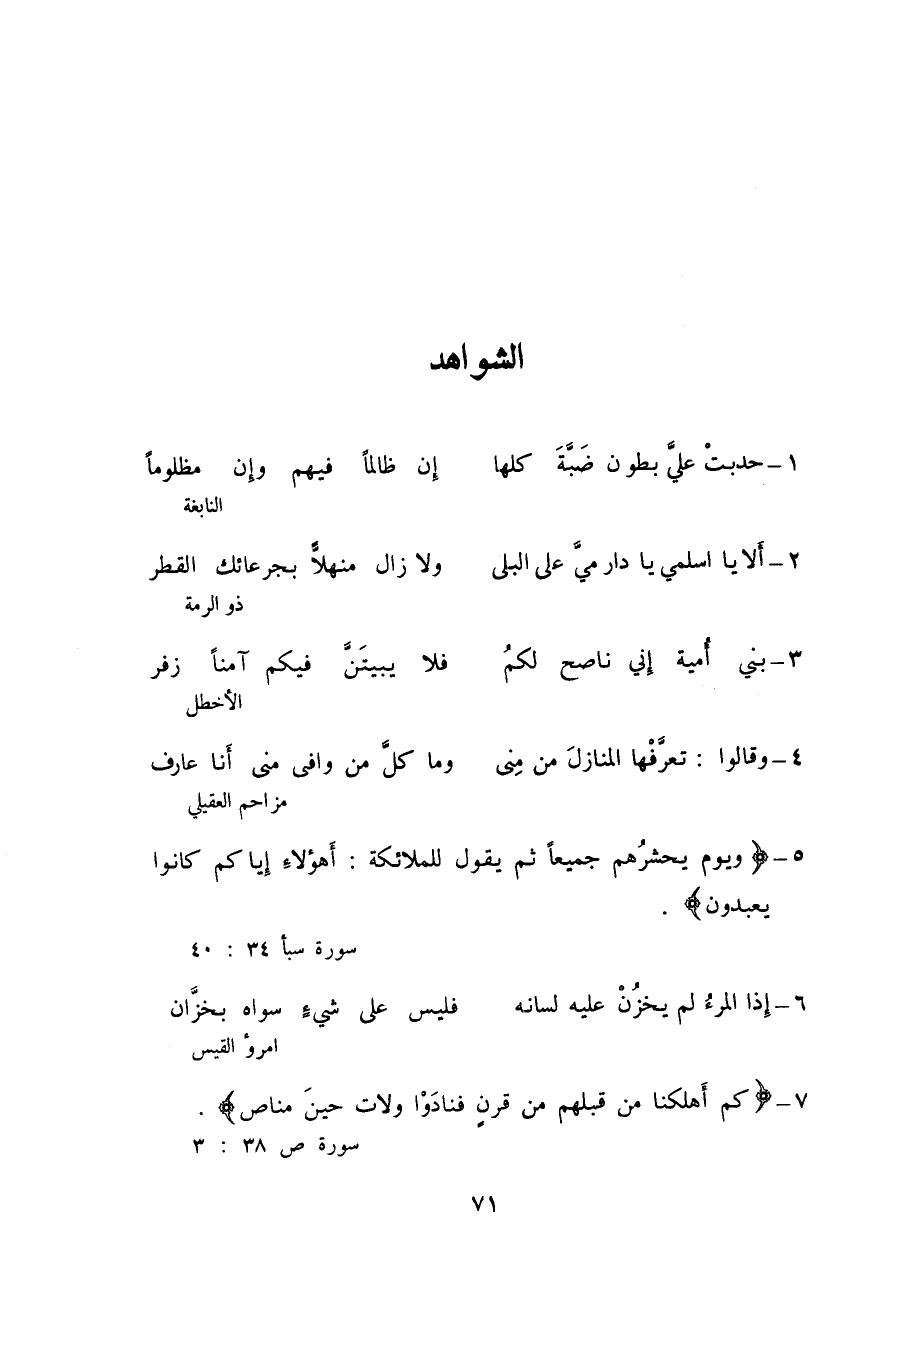 الشواهد
١ – حدبتْ عليَّ بطون ضَبَّةَ كلها إن ظالماً فيهم وإن مظلوماً
النابغة
٢ – ألا يا اسلمي يا دار ميَّ على البلى ولا زال منهلاًّ بجرعائك القطر
ذو الرمة
٣ – بني أُمية إني ناصح لكمُ فلا يبيتَنَّ فيكم آمناً زفر
الأخطل
٤ – وقالوا : تعرَّفْها المنازلَ من مِنى وما كلَّ من وافى منى أَنا عارف
مزاحم العقيلي
٥ – ﴿ ويوم يحشرُهم جميعاً ثم يقول للملائكة : أَهؤلاءِ إياكم كانوا
يعبدون﴾ .
سورة سبأ ٣٤ : ٤٠
٦ – إذا المرءُ لم يخزُنْ عليه لسانه فليس على شيءٍ سواه بخزَّان
امرؤ القيس
٧ – ﴿كم أَهلكنا من قبلهم من قرنٍ فنادَوْا ولات حينَ مناص﴾ .
سورة ص ٣٨ : ٣
٧١